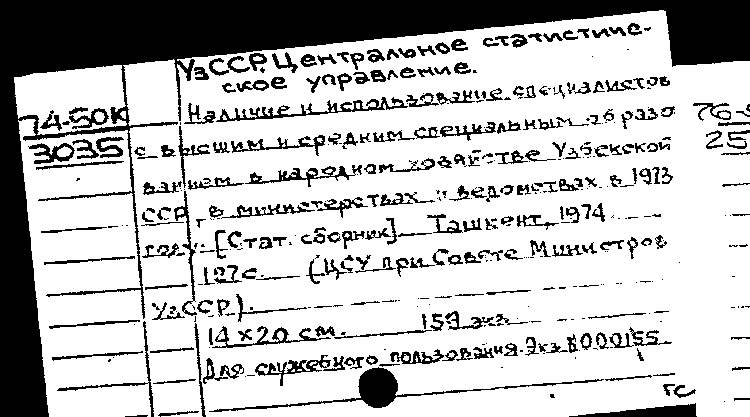 УзССР. Центральное статистиче-
ское управление.
74-50К
3035
Наличие и использование специалистов
с высшим и средним специальным образо
ванием в народном хозяйстве Узбекской
ССР, в министерствах и ведомствах в 1973
году. [Стат. сборник]. Ташкент, 1974
127с. (ЦСУ при Совете Министров
УзССР).
14 х 20 см. 159 экз
Для служебного пользования. Экз №000155
ГС
76-
25